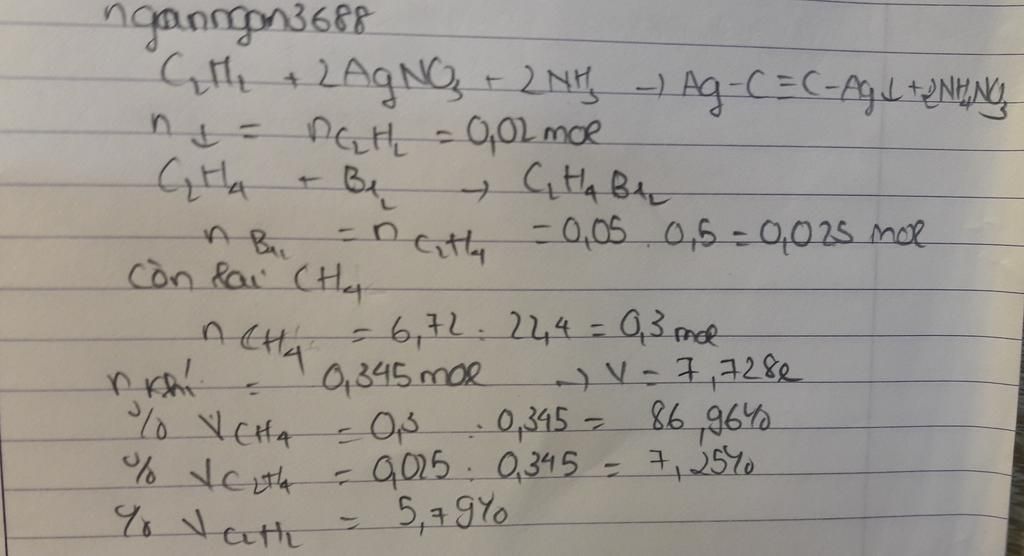 nganngan3688
C₂H₂ + 2AgNO₃ + 2NH₃ → Ag-C≡C-Ag↓ + 2NH₄NO₃
n↓ = nC₂H₂ = 0,02 mol
C₂H₄ + Br₂ → C₂H₄Br₂
nBr₂ = nC₂H₄ = 0,05 . 0,5 = 0,025 mol
Còn lại CH₄
nCH₄ = 6,72 : 22,4 = 0,3 mol
n khí = 0,345 mol → V = 7,728l
% VCH₄ = 0,3 : 0,345 = 86,96%
% VC₂H₄ = 0,025 : 0,345 = 7,25%
% VC₂H₂ = 5,79%